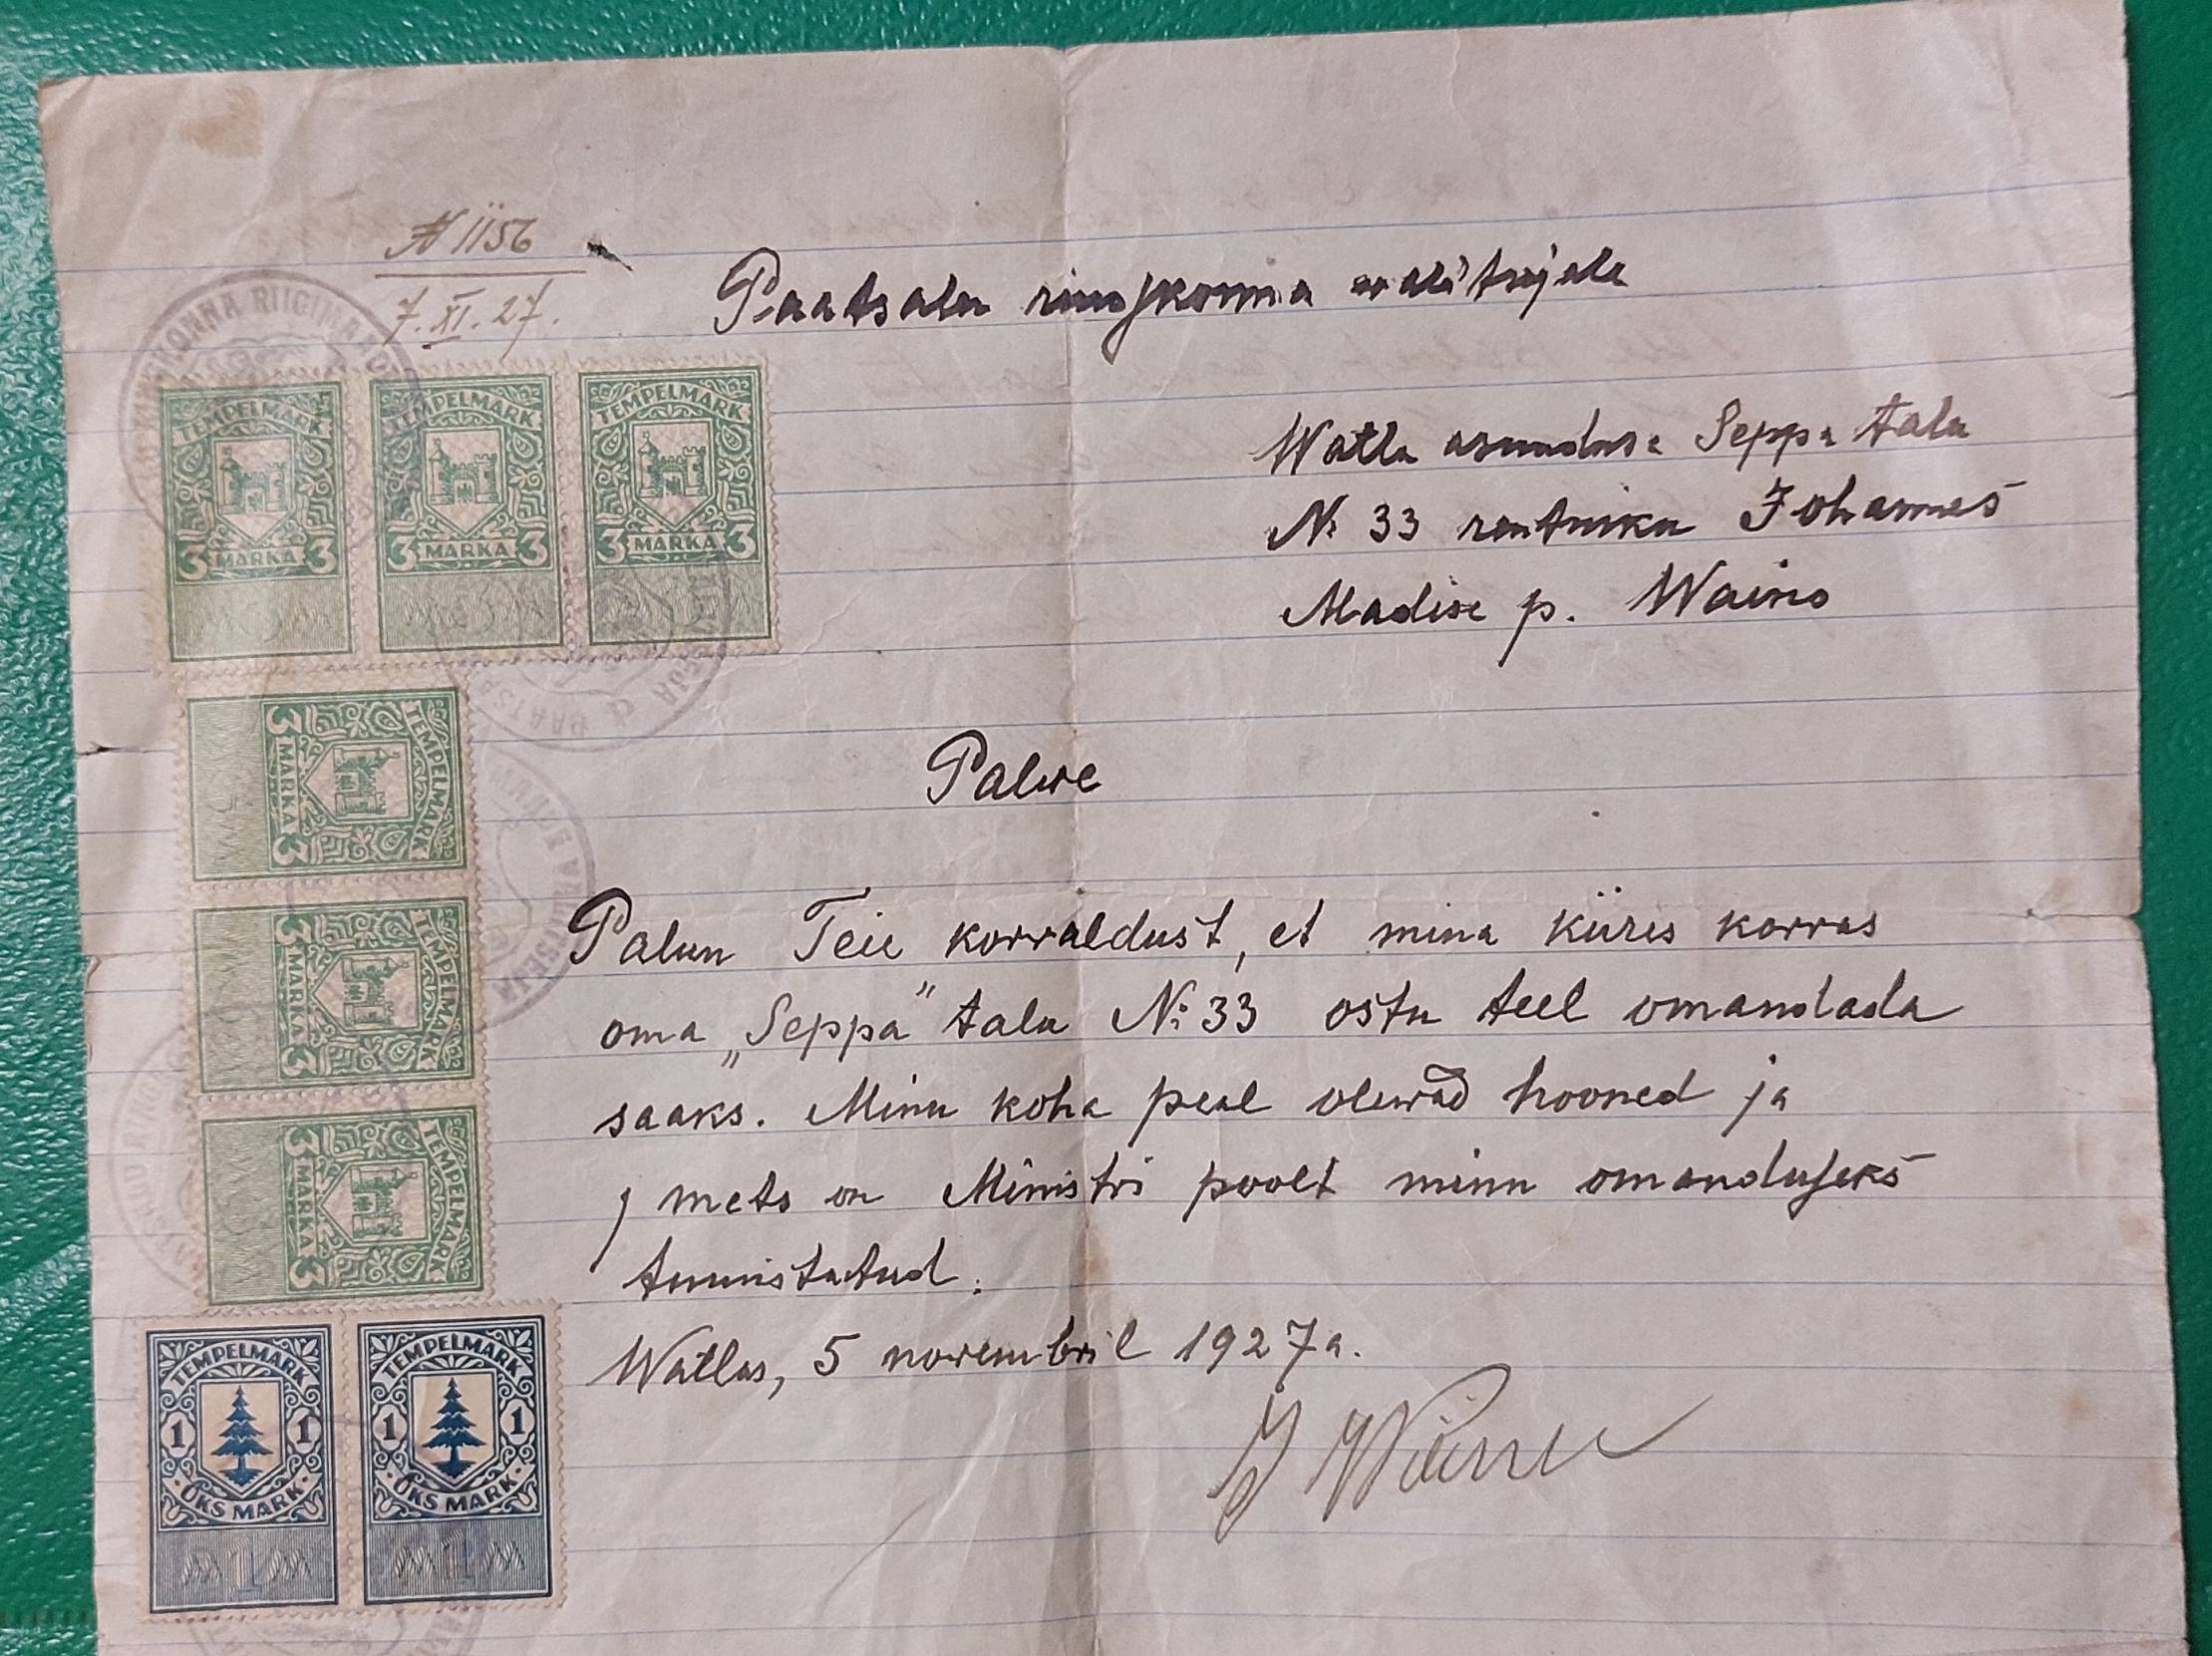 № 1156
7. XI. 27.
Paatsalu ringkonna walitsejale
Watla asunduse Seppa talu
№ 33 rentniku Johannes
Madise p. Waino
Palwe
Palun Teie korraldust, et mina kiires korras
oma „Seppa” talu № 33 ostu teel omandada
saaks. Minu koha peal olewad hooned ja
mets on Ministri poolt minu omanduseks
tunnistatud.
Watlas, 5 novembril 1927 a.
J Waino
TEMPELMARK
3 MARKA 3
TEMPELMARK
3 MARKA 3
TEMPELMARK
3 MARKA 3
TEMPELMARK
3 MARKA 3
TEMPELMARK
3 MARKA 3
TEMPELMARK
3 MARKA 3
TEMPELMARK
1 1
ÜKS MARK
1
TEMPELMARK
1 1
ÜKS MARK
1